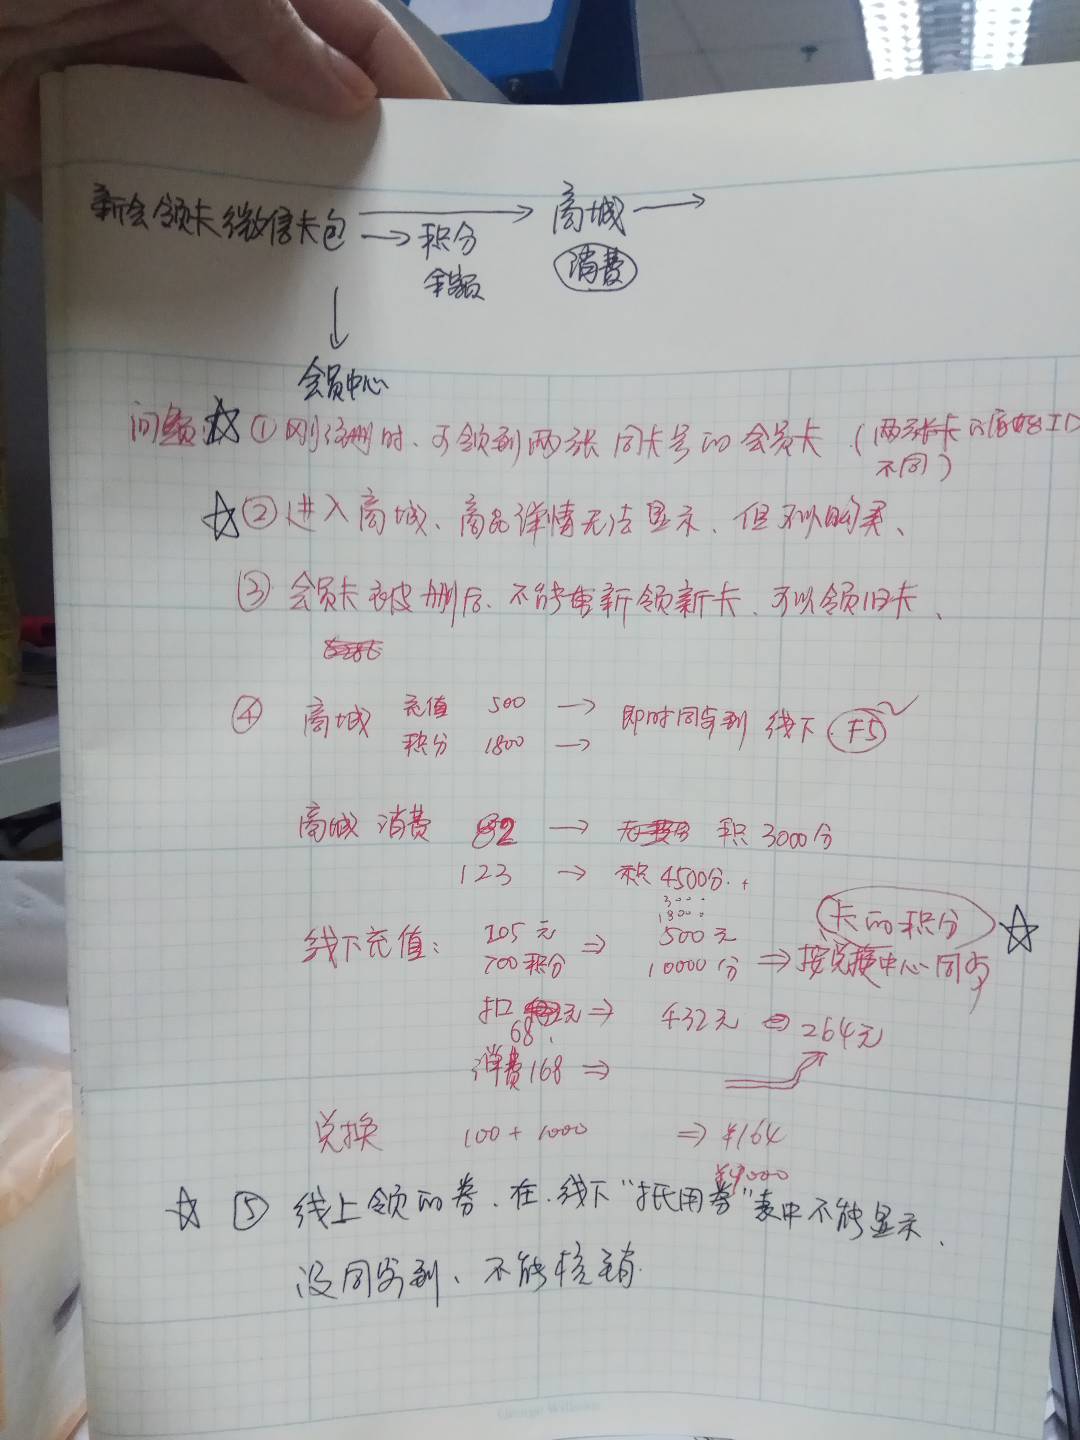 新会领卡 微信卡包 → 商城 →
→ 积分 消费
余额
↓
会员中心
问题: ☆ ① 刚注册时、可领到两张同卡号的会员卡 (两张卡
不同)
☆ ② 进入商城、商品详情无法显示、但可以购买、
③ 会员卡被删后、不能重新领新卡、可以领旧卡、
④ 商城 充值 500 → 即时同步到 线下 F5 ✓
积分 1800 →
商城 消费 82 → 积 3000分
123 → 积 4500分.
3000
1800
卡的积分 ☆
线下充值: 205元 ⇒ 500元
700积分 10000分 ⇒ 按兑换中心同步
扣 元 ⇒ 432元 ⇒ 264元
68
消费168 ⇒
兑换 100 + 1000 ⇒ ¥164
¥9000
☆ ⑤ 线上领的券、在、线下“抵用券”表中不能显示、
没同步到、不能核销.